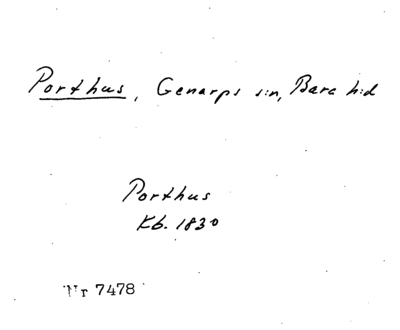 Porthus, Genarps s:n, Bara h:d
Porthus
Kb. 1830
Nr 7478